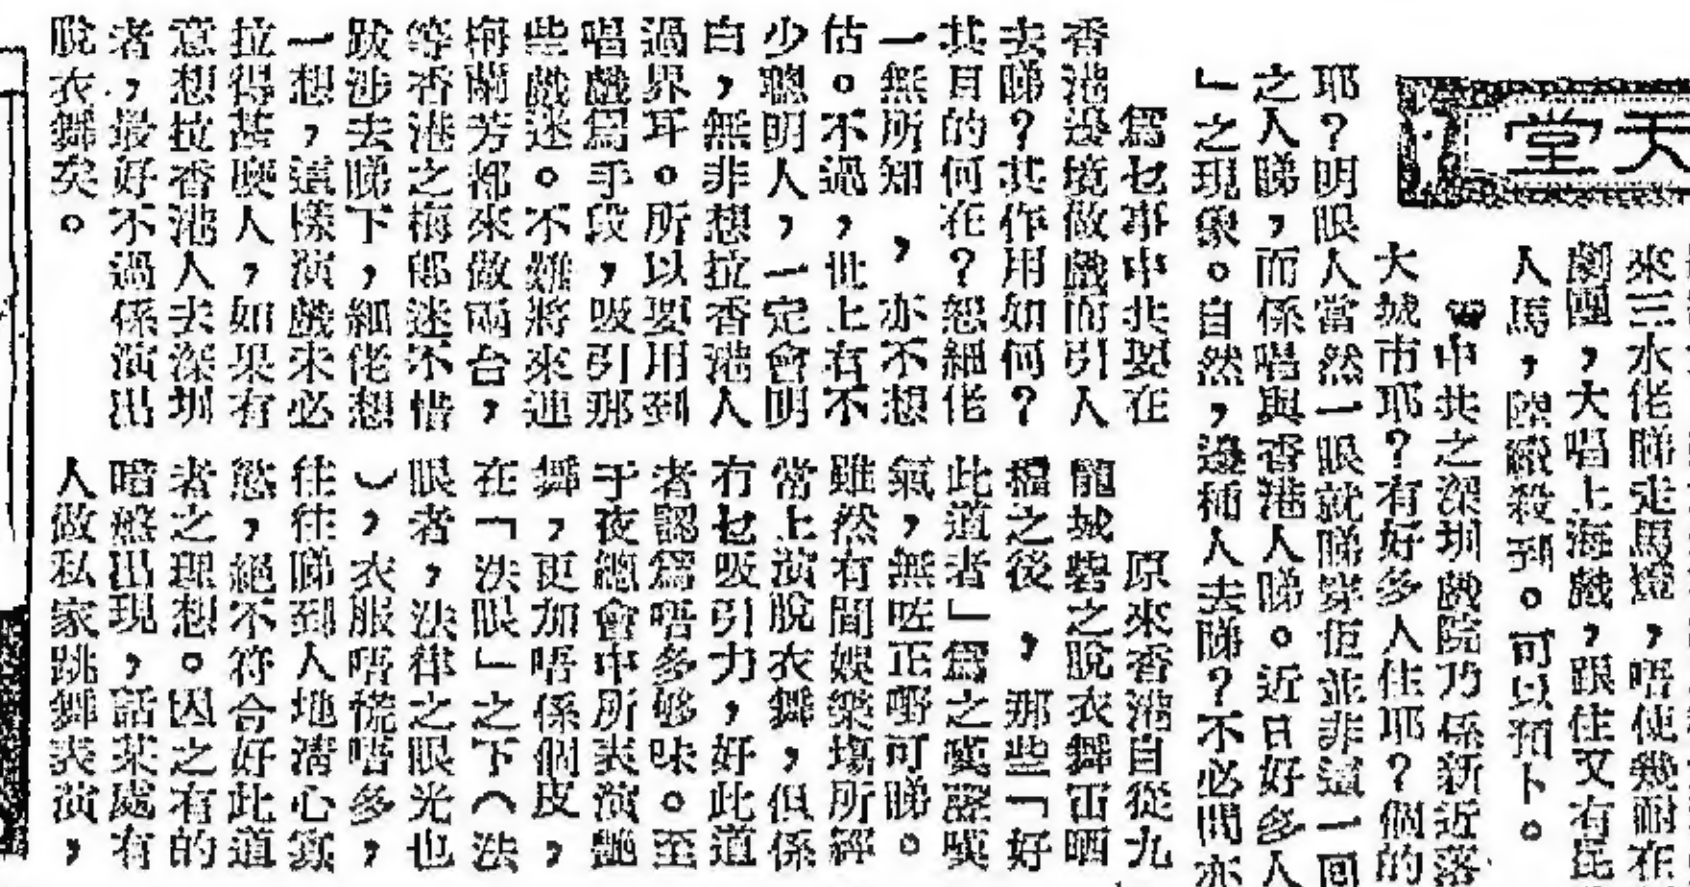 天堂
來三水佬睇走馬燈，唔使幾耐在
劇團，大唱上海戲，跟住又有昆
人馬，陸續殺到。可以預卜。
中共之深圳戲院乃係新近落
大城市耶？有好多人住耶？個的
耶？明眼人當然一眼就睇穿佢並非這一回
之人睇，而係唱與香港人睇。近日好多人
」之現象。自然，邊種人去睇？不必問亦
爲乜事中共要在
香港邊境做戲而引人
去睇？其作用如何？
其目的何在？恕細佬
一無所知，亦不想
估。不過，世上有不
少聰明人，一定會明
白，無非想拉香港人
過界耳。所以要用到
唱戲爲手段，吸引那
些戲迷。不難將來連
梅蘭芳都來做兩台，
等香港之梅郎迷不惜
跋涉去睇下，細佬想
一想，這樣演戲未必
拉得甚麼人，如果有
意想拉香港人去深圳
者，最好不過係演出
脫衣舞矣。
原來香港自從九
龍城砦之脫衣舞冚晒
檔之後，那些「好
此道者」爲之哀聲嘆
氣，無咗正嘢可睇。
雖然有間娛樂塲所經
常上演脫衣舞，但係
冇乜吸引力，好此道
者認爲唔多够味。至
于夜總會中所表演艷
舞，更加唔係個皮，
在「法眼」之下（法
眼者，法律之眼光也
），衣服唔慌唔多，
往往睇到人地淸心寡
慾，絕不符合好此道
者之理想。因之有的
暗盤出現，話某處有
人做私家跳舞表演，